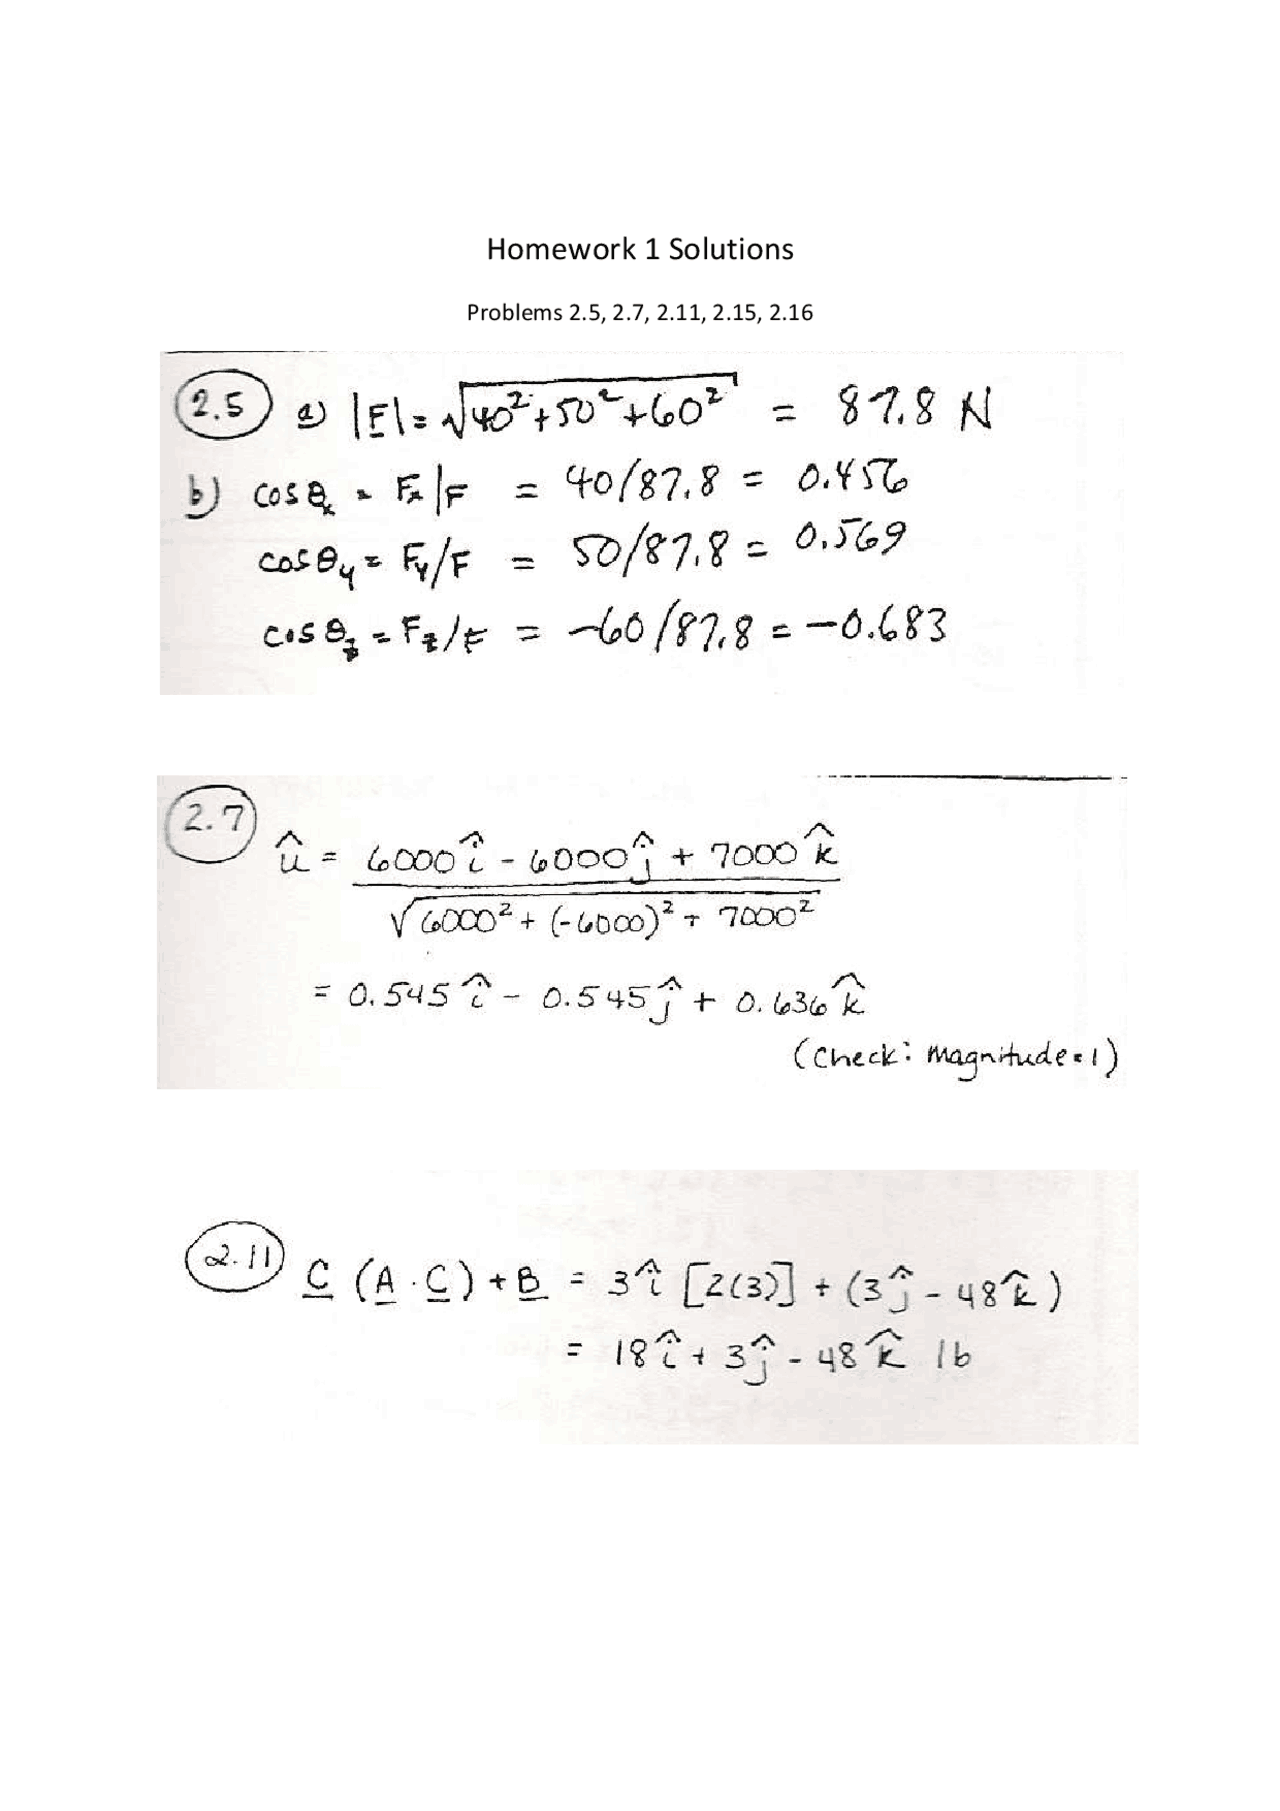 Homework 1 Solutions
Problems 2.5, 2.7, 2.11, 2.15, 2.16
2.5 a) |F| = √40²+50²+60² = 87.8 N
b) cosθx = Fx/F = 40/87.8 = 0.456
cosθy = Fy/F = 50/87.8 = 0.569
cosθz = Fz/F = -60/87.8 = -0.683
2.7
û = 6000î - 6000ĵ + 7000k̂
√6000² + (-6000)² + 7000²
= 0.545î - 0.545ĵ + 0.636k̂
(Check: magnitude=1)
2.11 C (A · C) + B = 3î [2(3)] + (3ĵ - 48k̂)
= 18î + 3ĵ - 48k̂ lb